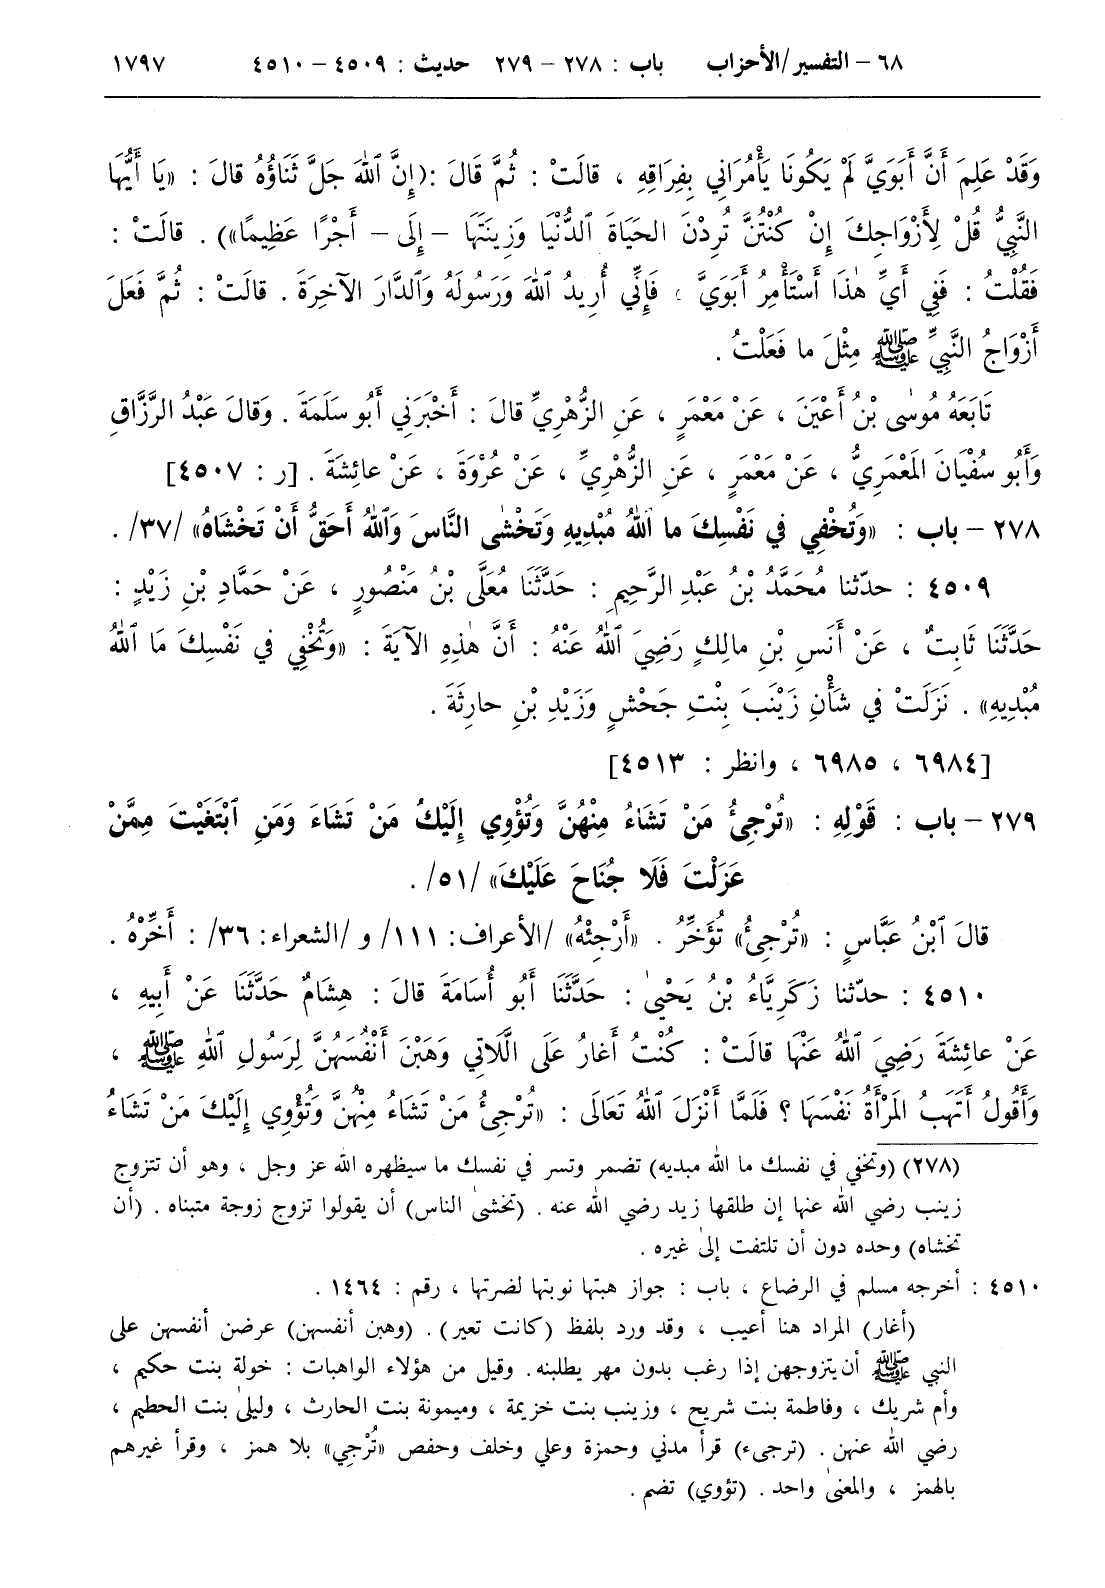 ٦٨ – التفسير/الأحزاب باب : ٢٧٨ – ٢٧٩ حديث : ٤٥٠٩ – ٤٥١٠ ١٧٩٧
وَقَدْ عَلِمَ أَنَّ أَبَوَيَّ لَمْ يَكُونَا يَأْمُرَانِي بِفِرَاقِهِ ، قالَتْ : ثُمَّ قَالَ :(إِنَّ ٱللهَ جَلَّ ثَنَاؤُهُ قالَ : «يَا أَيُّهَا
النَّبِيُّ قُلْ لِأَزْوَاجِكَ إِنْ كُنْتُنَّ تُرِدْنَ الحَيَاةَ ٱلدُّنْيَا وَزِينَتَهَا – إِلَى – أَجْرًا عَظِيمًا») . قالَتْ :
فَقُلْتُ : فَفِي أَيِّ هٰذَا أَسْتَأْمِرُ أَبَوَيَّ ، فَإِنِّي أُرِيدُ ٱللهَ وَرَسُولَهُ وَٱلدَّارَ الآخِرَةَ . قالَتْ : ثُمَّ فَعَلَ
أَزْوَاجُ النَّبِيِّ ﷺ مِثْلَ ما فَعَلْتُ .
تَابَعَهُ مُوسٰى بْنُ أَعْيَنَ ، عَنْ مَعْمَرٍ ، عَنِ الزُّهْرِيِّ قالَ : أَخْبَرَنِي أَبُو سَلَمَةَ . وَقالَ عَبْدُ الرَّزَّاقِ
وَأَبُو سُفْيَانَ المَعْمَرِيُّ ، عَنْ مَعْمَرٍ ، عَنِ الزُّهْرِيِّ ، عَنْ عُرْوَةَ ، عَنْ عائِشَةَ . [ر : ٤٥٠٧]
٢٧٨ – باب : «وَتُخْفِي في نَفْسِكَ ما ٱللهُ مُبْدِيهِ وَتَخْشٰى النَّاسَ وَٱللهُ أَحَقُّ أَنْ تَخْشَاهُ» /٣٧/ .
٤٥٠٩ : حدّثنا مُحَمَّدُ بْنُ عَبْدِ الرَّحِيمِ : حَدَّثَنَا مُعَلَّى بْنُ مَنْصُورٍ ، عَنْ حَمَّادِ بْنِ زَيْدٍ :
حَدَّثَنَا ثَابِتٌ ، عَنْ أَنَسِ بْنِ مالِكٍ رَضِيَ ٱللهُ عَنْهُ : أَنَّ هٰذِهِ الآيَةَ : «وَتُخْفِي في نَفْسِكَ مَا ٱللهُ
مُبْدِيهِ» . نَزَلَتْ في شَأْنِ زَيْنَبَ بِنْتِ جَحْشٍ وَزَيْدِ بْنِ حارِثَةَ .
[٦٩٨٤ ، ٦٩٨٥ ، وانظر : ٤٥١٣]
٢٧٩ – باب : قَوْلِهِ : «تُرْجِئُ مَنْ تَشَاءُ مِنْهُنَّ وَتُؤْوِي إِلَيْكَ مَنْ تَشَاءَ وَمَنِ ٱبْتَغَيْتَ مِمَّنْ
عَزَلْتَ فَلَا جُنَاحَ عَلَيْكَ» /٥١/ .
قالَ ٱبْنُ عَبَّاسٍ : «تُرْجِئُ» تُؤَخِّرُ . «أَرْجِئْهُ» /الأعراف: ١١١/ و /الشعراء: ٣٦/ : أَخِّرْهُ .
٤٥١٠ : حدّثنا زَكَرِيَّاءُ بْنُ يَحْيىٰ : حَدَّثَنَا أَبُو أُسَامَةَ قالَ : هِشَامٌ حَدَّثَنَا عَنْ أَبِيهِ ،
عَنْ عائِشَةَ رَضِيَ ٱللهُ عَنْهَا قالَتْ : كُنْتُ أَغارُ عَلَى الَّلَاتِي وَهَبْنَ أَنْفُسَهُنَّ لِرَسُولِ ٱللهِ ﷺ ،
وَأَقُولُ أَتَهَبُ المَرْأَةُ نَفْسَهَا ؟ فَلَمَّا أَنْزَلَ ٱللهُ تَعَالَى : «تُرْجِئُ مَنْ تَشَاءُ مِنْهُنَّ وَتُؤْوِي إِلَيْكَ مَنْ تَشَاءُ
(٢٧٨) (وتخفي في نفسك ما الله مبديه) تضمر وتسر في نفسك ما سيظهره الله عز وجل ، وهو أن تتزوج
زينب رضي الله عنها إن طلقها زيد رضي الله عنه . (تخشىٰ الناس) أن يقولوا تزوج زوجة متبناه . (أن
تخشاه) وحده دون أن تلتفت إلىٰ غيره .
٤٥١٠ : أخرجه مسلم في الرضاع ، باب : جواز هبتها نوبتها لضرتها ، رقم : ١٤٦٤ .
(أغار) المراد هنا أعيب ، وقد ورد بلفظ (كانت تعير) . (وهبن أنفسهن) عرضن أنفسهن على
النبي ﷺ أن يتزوجهن إذا رغب بدون مهر يطلبنه . وقيل من هؤلاء الواهبات : خولة بنت حكيم ،
وأم شريك ، وفاطمة بنت شريح ، وزينب بنت خزيمة ، وميمونة بنت الحارث ، وليلىٰ بنت الحطيم ،
رضي الله عنهن . (ترجىء) قرأ مدني وحمزة وعلي وخلف وحفص «تُرْجِي» بلا همز ، وقرأ غيرهم
بالهمز ، والمعنىٰ واحد . (تؤوي) تضم .